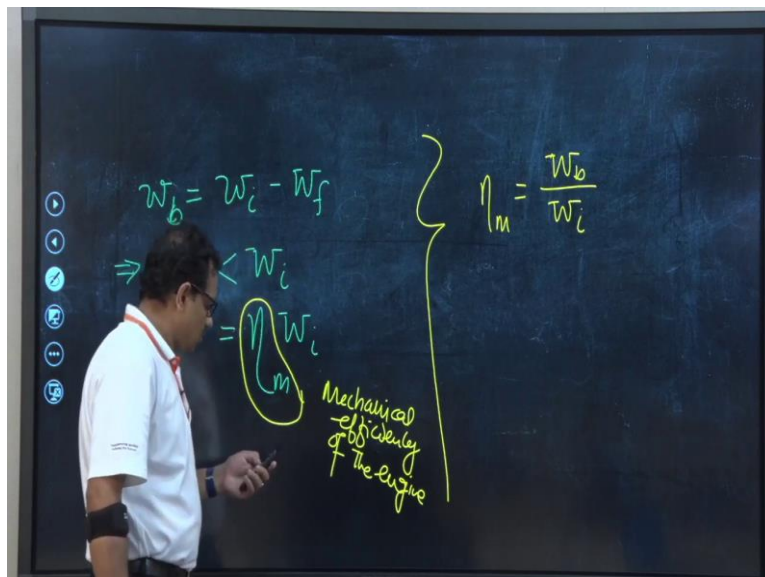 w_b = w_i - w_f
⇒ < w_i
= η_m w_i
Mechanical
efficiency
of
the engine
η_m = w_b / w_i